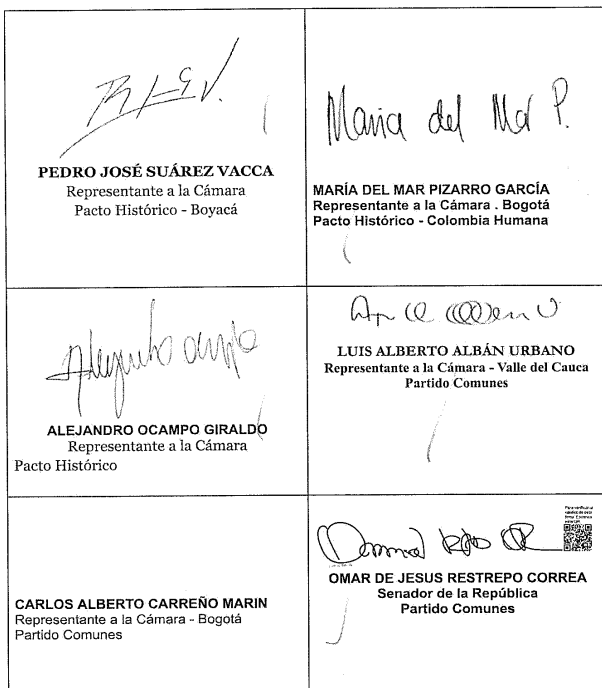 PEDRO JOSÉ SUÁREZ VACCA
Representante a la Cámara
Pacto Histórico - Boyacá
Maria del Mar P.
MARÍA DEL MAR PIZARRO GARCÍA
Representante a la Cámara . Bogotá
Pacto Histórico - Colombia Humana
Alejandro Ocampo
ALEJANDRO OCAMPO GIRALDO
Representante a la Cámara
Pacto Histórico
LUIS ALBERTO ALBÁN URBANO
Representante a la Cámara - Valle del Cauca
Partido Comunes
CARLOS ALBERTO CARREÑO MARIN
Representante a la Cámara - Bogotá
Partido Comunes
OMAR DE JESUS RESTREPO CORREA
Senador de la República
Partido Comunes